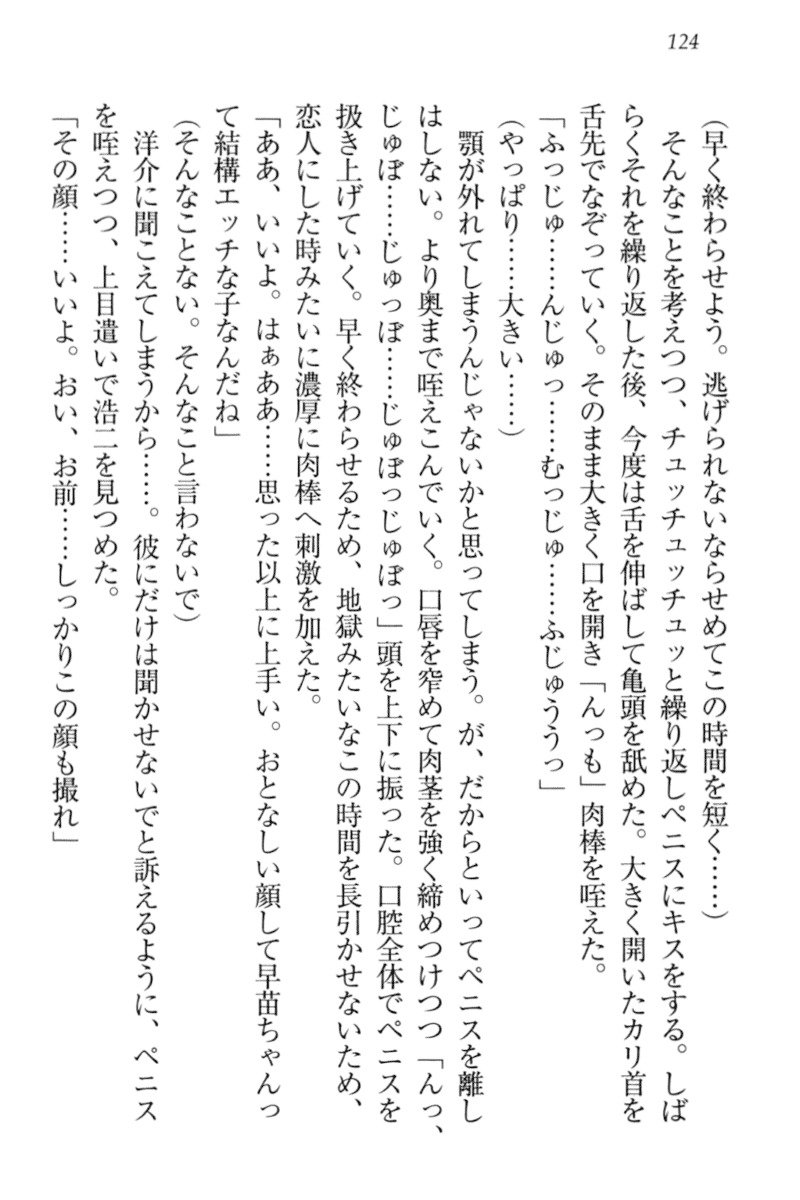 124
(早く終わらせよう。逃げられないならせめてこの時間を短く……)
そんなことを考えつつ、チュッチュッチュッと繰り返しペニスにキスをする。しば
らくそれを繰り返した後、今度は舌を伸ばして亀頭を舐めた。大きく開いたカリ首を
舌先でなぞっていく。そのまま大きく口を開き「んっも」肉棒を咥えた。
「ふっじゅ……んじゅっ……むっじゅ……ふじゅううっ」
(やっぱり……大きい……)
顎が外れてしまうんじゃないかと思ってしまう。が、だからといってペニスを離し
はしない。より奥まで咥えこんでいく。口唇を窄めて肉茎を強く締めつけつつ「んっ、
じゅぼ……じゅっぼ……じゅぼっじゅぼっ」頭を上下に振った。口腔全体でペニスを
扱き上げていく。早く終わらせるため、地獄みたいなこの時間を長引かせないため、
恋人にした時みたいに濃厚に肉棒へ刺激を加えた。
「ああ、いいよ。はぁああ……思った以上に上手い。おとなしい顔して早苗ちゃんっ
て結構エッチな子なんだね」
(そんなことない。そんなこと言わないで)
洋介に聞こえてしまうから……。彼にだけは聞かせないでと訴えるように、ペニス
を咥えつつ、上目遣いで浩二を見つめた。
「その顔……いいよ。おい、お前……しっかりこの顔も撮れ」